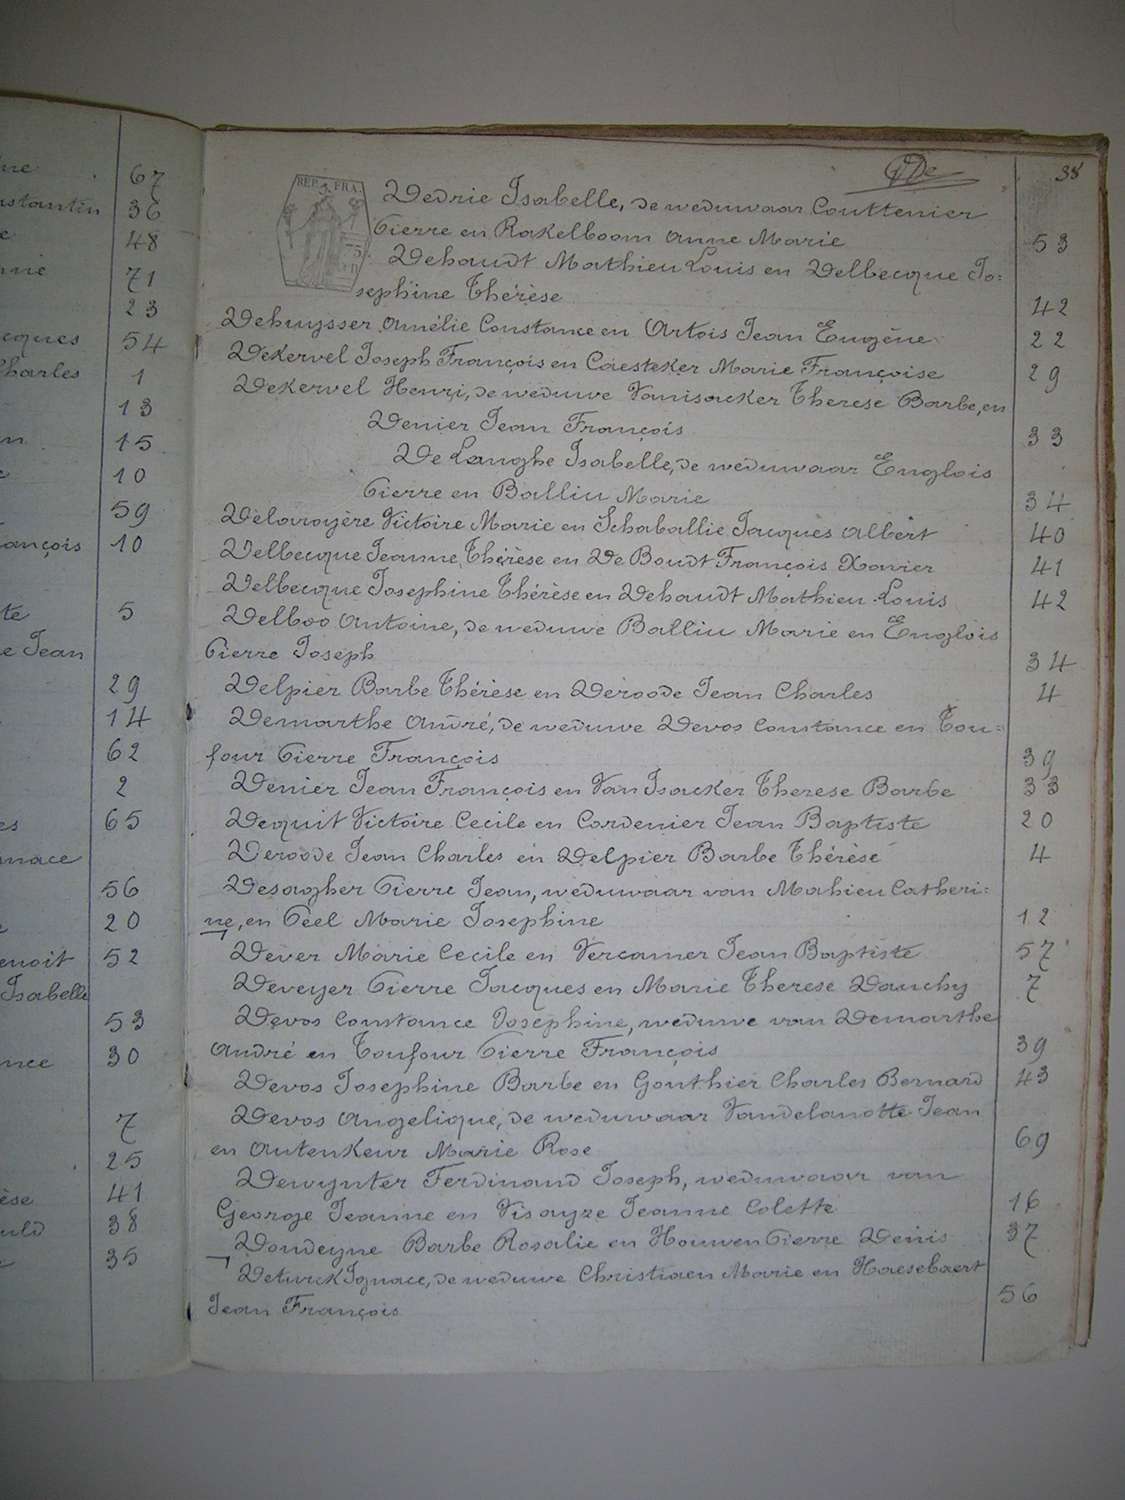 67
36
48
71
23
cques 54
Charles 1
13
15
10
59
ançois 10
te 5
e Jean
29
14
62
2
es 65
nace
56
20
enoit 52
Isabelle
53
nce 30
7
25
èse 41
uld 38
35
De 38
REP. FRA.
Dedrie Isabelle, de weduwaar Couttenier
Pierre en Rakelboom Anne Marie 53
Dehaudt Mathieu Louis en Delbecque Jo=
sephine Thérèse 42
Dehuysser Amélie Constance en Artois Jean Eugène 22
Dekervel Joseph François en Caesteker Marie Françoise 29
Dekervel Henri, de weduwe Vanisacker Therese Barbe, en
Denier Jean François 33
De Langhe Isabelle, de weduwaar Englois
Pierre en Balliu Marie 34
Delaroyère Victoire Marie en Schaballie Jacques Albert 40
Delbecque Jeanne Thérèse en De Boudt François Xavier 41
Delbecque Josephine Thérèse en Dehaudt Mathieu Louis 42
Delboo Antoine, de weduwe Balliu Marie en Englois
Pierre Joseph 34
Delpier Barbe Thérèse en Deroode Jean Charles 4
Demarthe André, de weduwe Devos Constance en Tou=
four Pierre François 39
Denier Jean François en Van Isacker Therese Barbe 33
Dequit Victoire Cecile en Cordenier Jean Baptiste 20
Deroode Jean Charles en Delpier Barbe Thérèse 4
Desagher Pierre Jean, weduwaar van Mahieu Catheri=
ne, en Peel Marie Josephine 12
Dever Marie Cecile en Vercamer Jean Baptiste 57
Deveyer Pierre Jacques en Marie Therese Dauchy 7
Devos Constance Josephine, weduwe van Demarthe
André en Toufour Pierre François 39
Devos Josephine Barbe en Gonthier Charles Bernard 43
Devos Angelique, de weduwaar Vandelanotte Jean
en Autenkeur Marie Rose 69
Dewynter Ferdinand Joseph, weduwaar van
George Jeanne en Visayze Jeanne Colette 16
Doudeyne Barbe Rosalie en Houwen Pierre Denis 37
Deturck Ignace, de weduwe Christiaen Marie en Haesebaert
Jean François 56